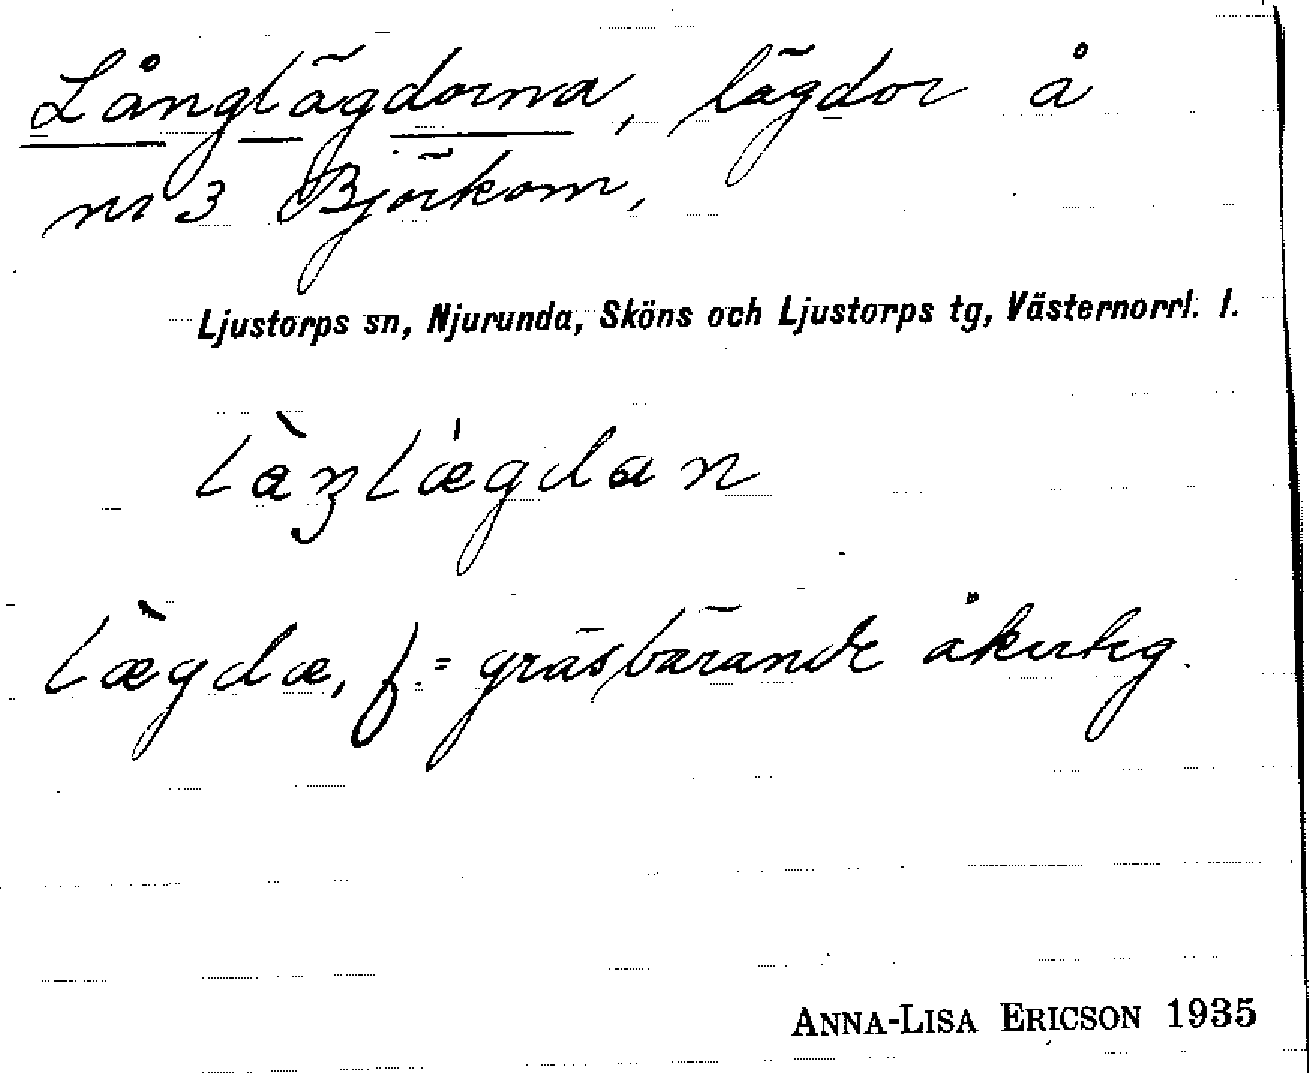 Långlägdorna, lägdor å
nr 3 Björkom,
Ljustorps sn, Njurunda, Sköns och Ljustorps tg, Västernorrl. l.
làŋlǽgdan
læ̀gda, f. = gräsbärande åkerteg.
ANNA-LISA ERICSON 1935